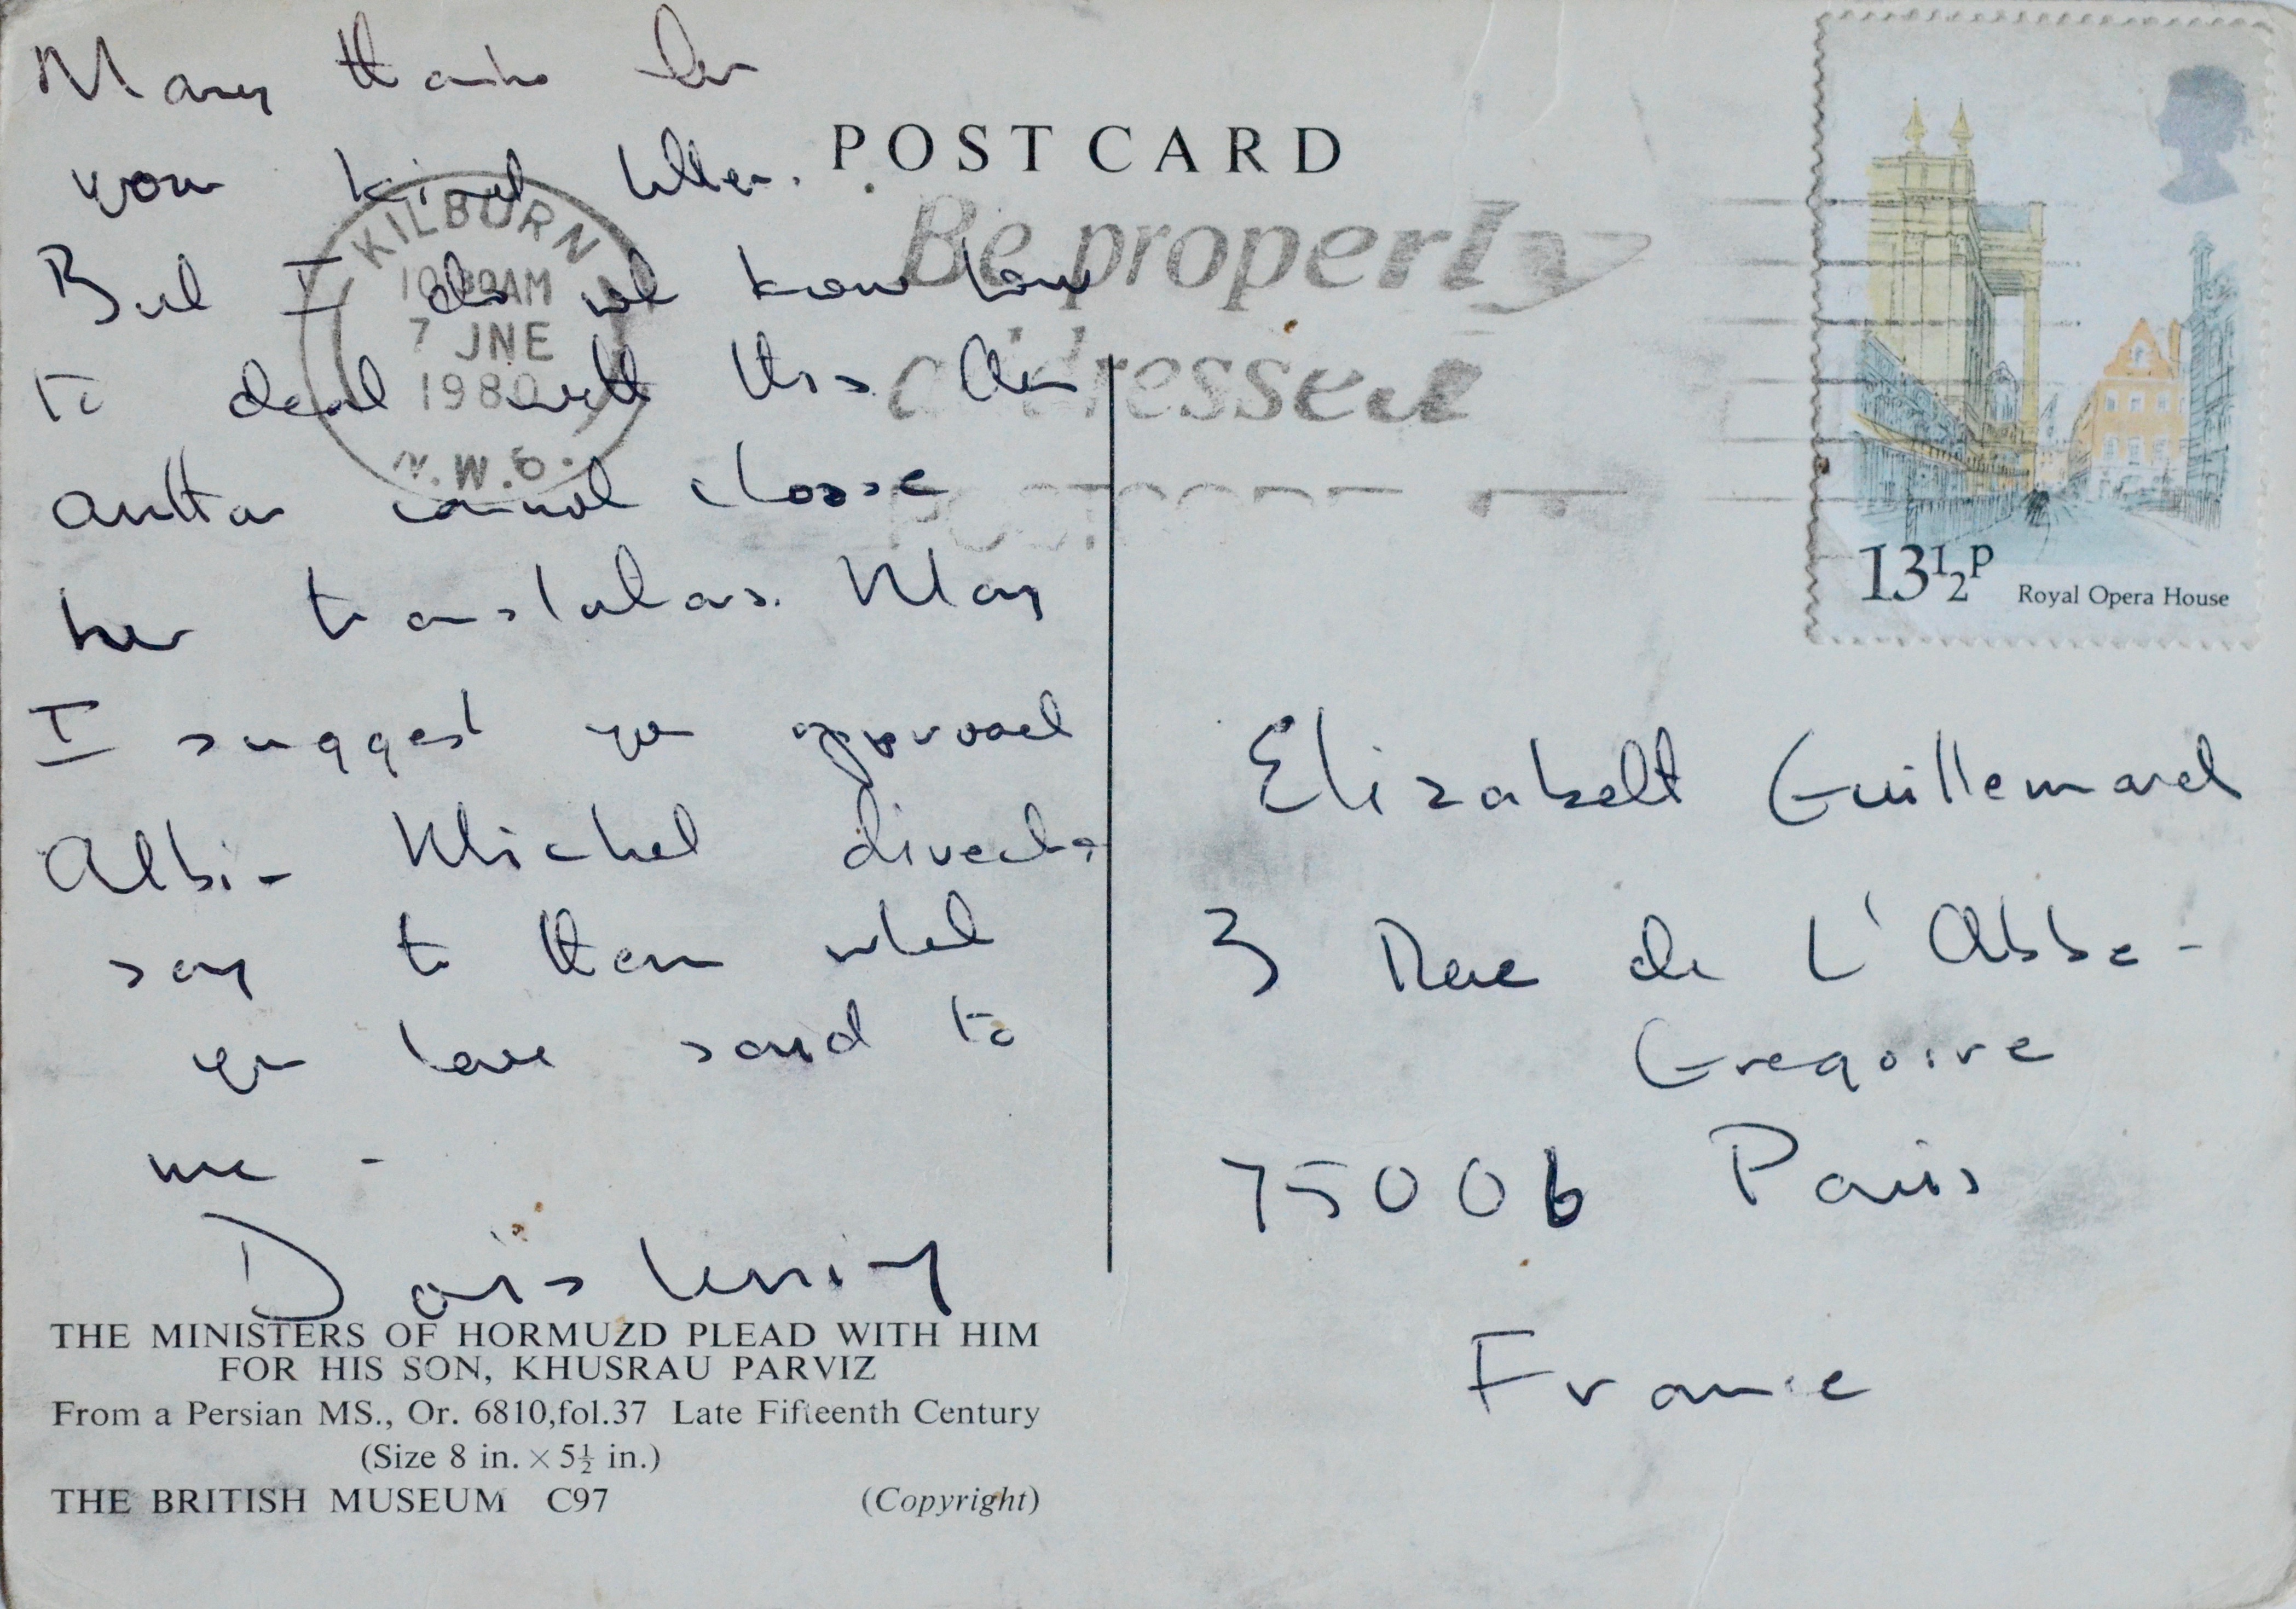 Many thanks for
your kind letter.
But I do not know how
to deal with this. An
author cannot choose
her translators. May
I suggest you approach
Albin Michel directly
say to them what
you have said to
me -
Doris Lessing
THE MINISTERS OF HORMUZD PLEAD WITH HIM
FOR HIS SON, KHUSRAU PARVIZ
From a Persian MS., Or. 6810,fol.37 Late Fifteenth Century
(Size 8 in. × 5½ in.)
THE BRITISH MUSEUM C97 (Copyright)
POST CARD
KILBURN
AM
7 JNE
1980
N.W.6.
Be properly
addressed
13½P Royal Opera House
Elizabeth Guillemard
3 Rue de L'Abbe-
Gregoire
75006 Paris
France